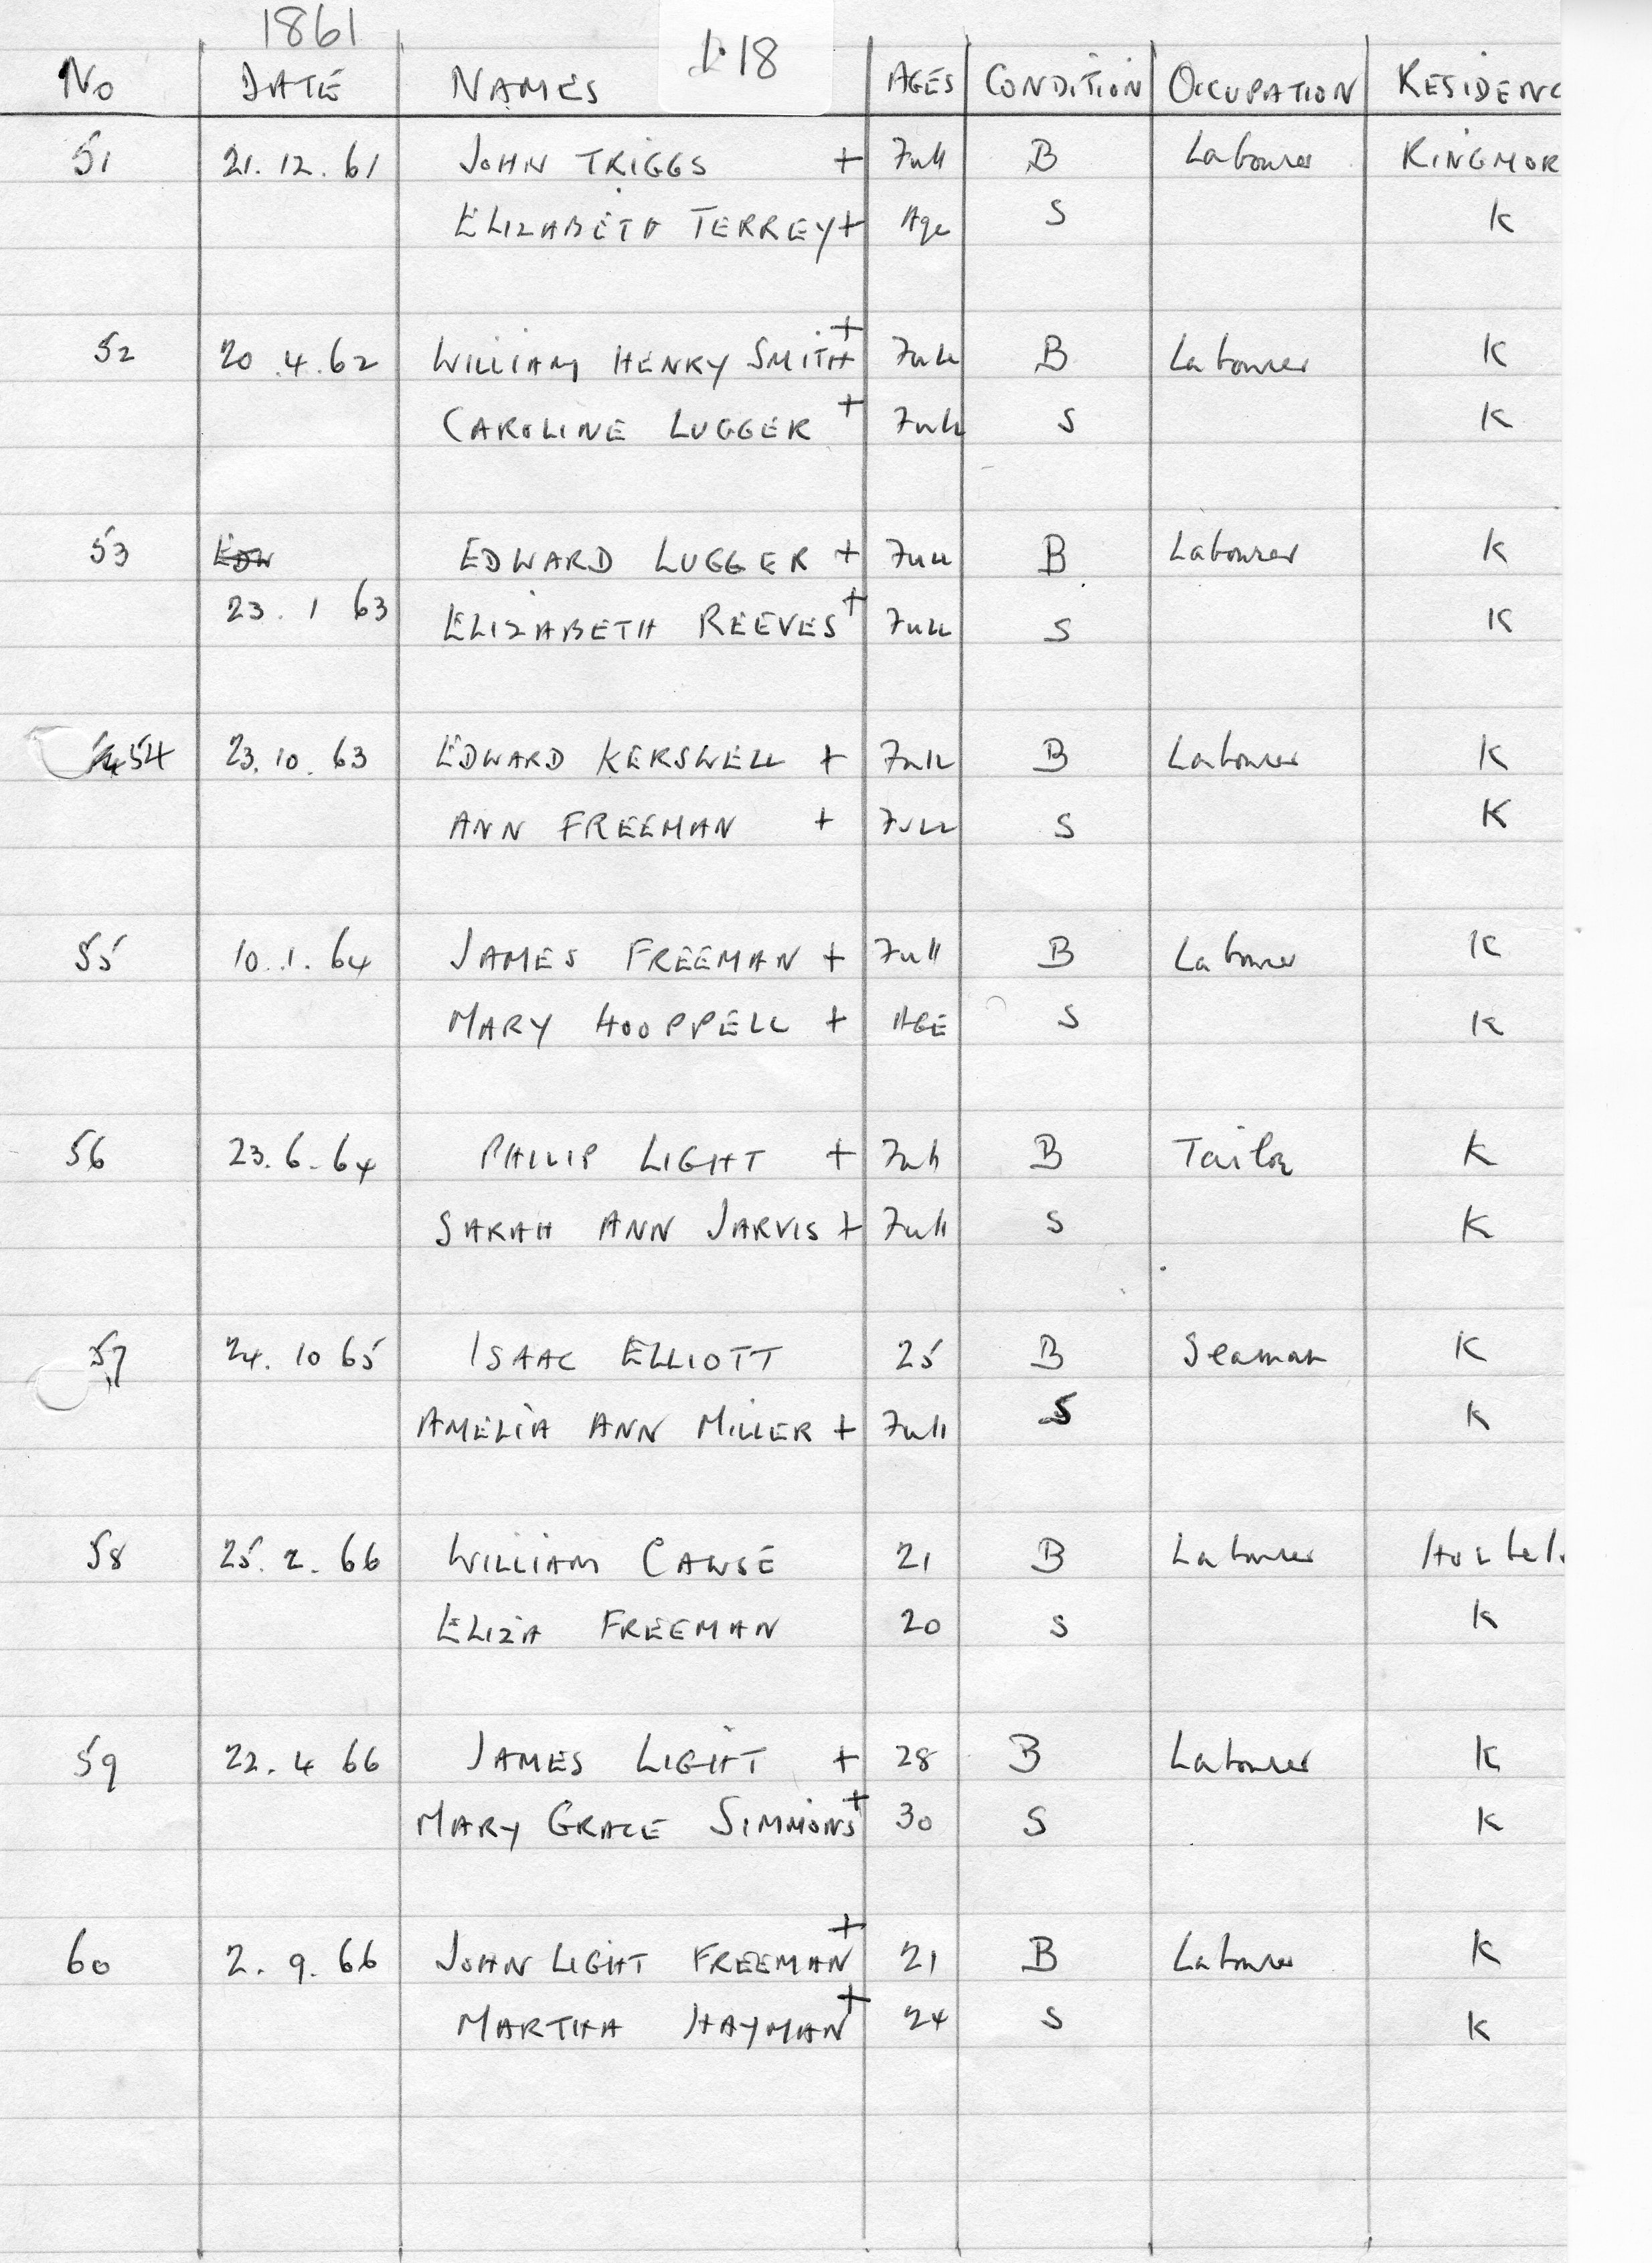 1861
1.18
No DATE NAMES AGES CONDITION OCCUPATION RESIDENC
51 21.12.61 JOHN TRIGGS + Full B Labourer KINGMOR
ELIZABETH TERREY + Age S K
52 20.4.62 WILLIAM HENRY SMITH + Full B Labourer K
CAROLINE LUGGER + Full S K
53 EDW EDWARD LUGGER + Full B Labourer K
23.1 63 ELIZABETH REEVES + Full S K
54 23.10.63 EDWARD KERSWELL + Full B Labourer K
ANN FREEMAN + Full S K
55 10.1.64 JAMES FREEMAN + Full B Labourer K
MARY HOOPPELL + AGE S K
56 23.6.64 PHILIP LIGHT + Full B Tailor K
SARAH ANN JARVIS + Full S K
57 24.10 65 ISAAC ELLIOTT 25 B Seaman K
AMELIA ANN MILLER + Full S K
58 25.2.66 WILLIAM CAWSE 21 B Labourer
ELIZA FREEMAN 20 S K
59 22.4 66 JAMES LIGHT + 28 B Labourer K
MARY GRACE SIMMONS + 30 S K
60 2.9.66 JOHN LIGHT FREEMAN + 21 B Labourer K
MARTHA HAYMAN + 24 S K